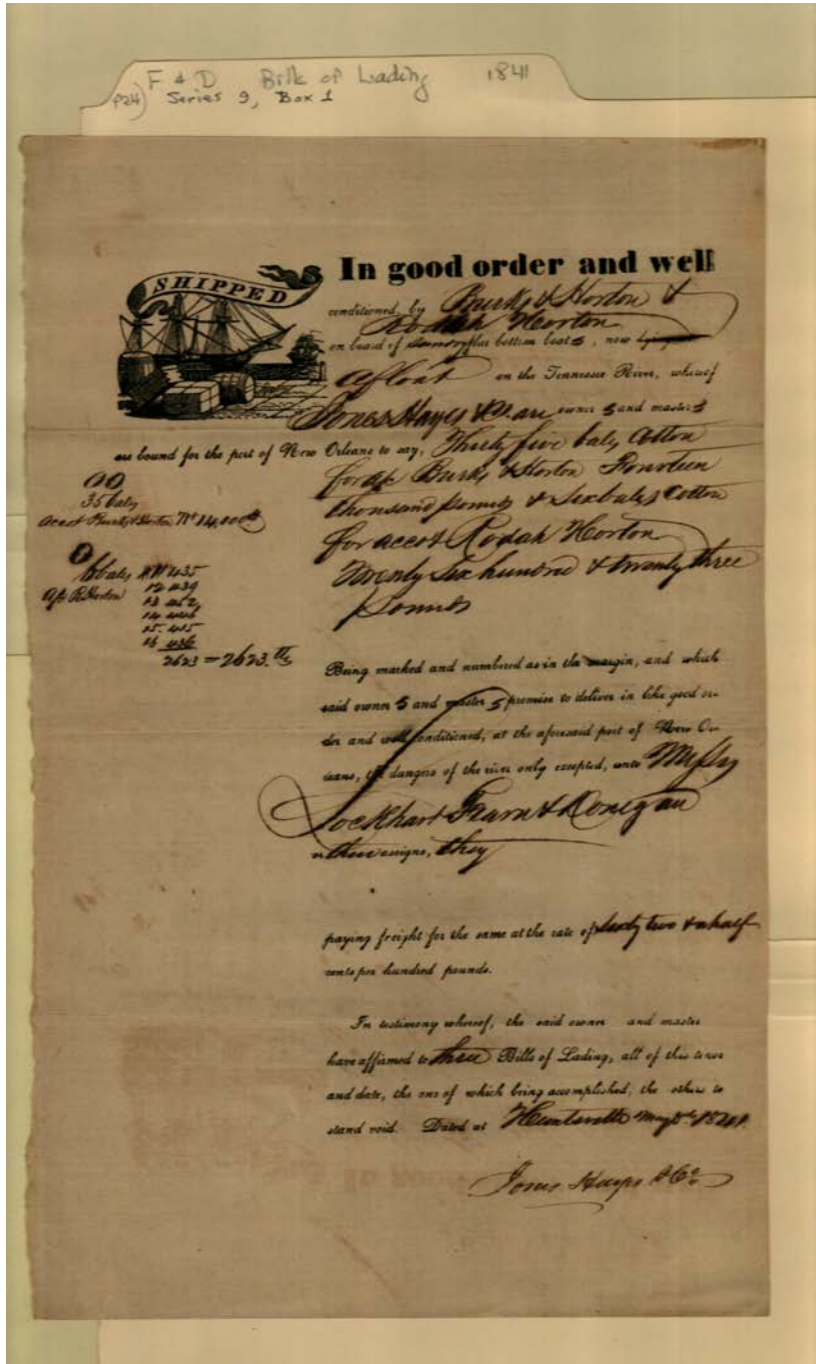 F & D Bills of Lading 1841
P24) Series 9, Box 1
SHIPPED
In good order and well
conditioned, by Burks & Horton &
Rodah Horton
on board of flat bottom boats, now lying
afloat on the Tennessee River, whereof
Jones Hayes & Co. are owners and masters
are bound for the port of New Orleans to say, Thirty five bales Cotton
for a/c Burks & Horton Fourteen
thousand pounds & Six bales Cotton
for acco't Rodah Horton
Twenty Six hundred & twenty three
Pounds
35 bales
acco't Burks & Horton Wt 14,000
6 bales 435
a/c R. Horton 12 439
13 452
14 446
15. 415
16 436
2623 = 2623. lbs
Being marked and numbered as in the margin, and which
said owners and masters promise to deliver in like good or-
der and well conditioned, at the aforesaid port of New Or-
leans, the dangers of the river only excepted, unto Messrs
Lockhart Fearn & Donegan
or their assigns, they
paying freight for the same at the rate of sixty two & a half
cents per hundred pounds.
In testimony whereof, the said owner and master
have affirmed to three Bills of Lading, all of this tenor
and date, the one of which being accomplished, the others to
stand void. Dated at Huntsville May 1841.
Jones Hayes & Co